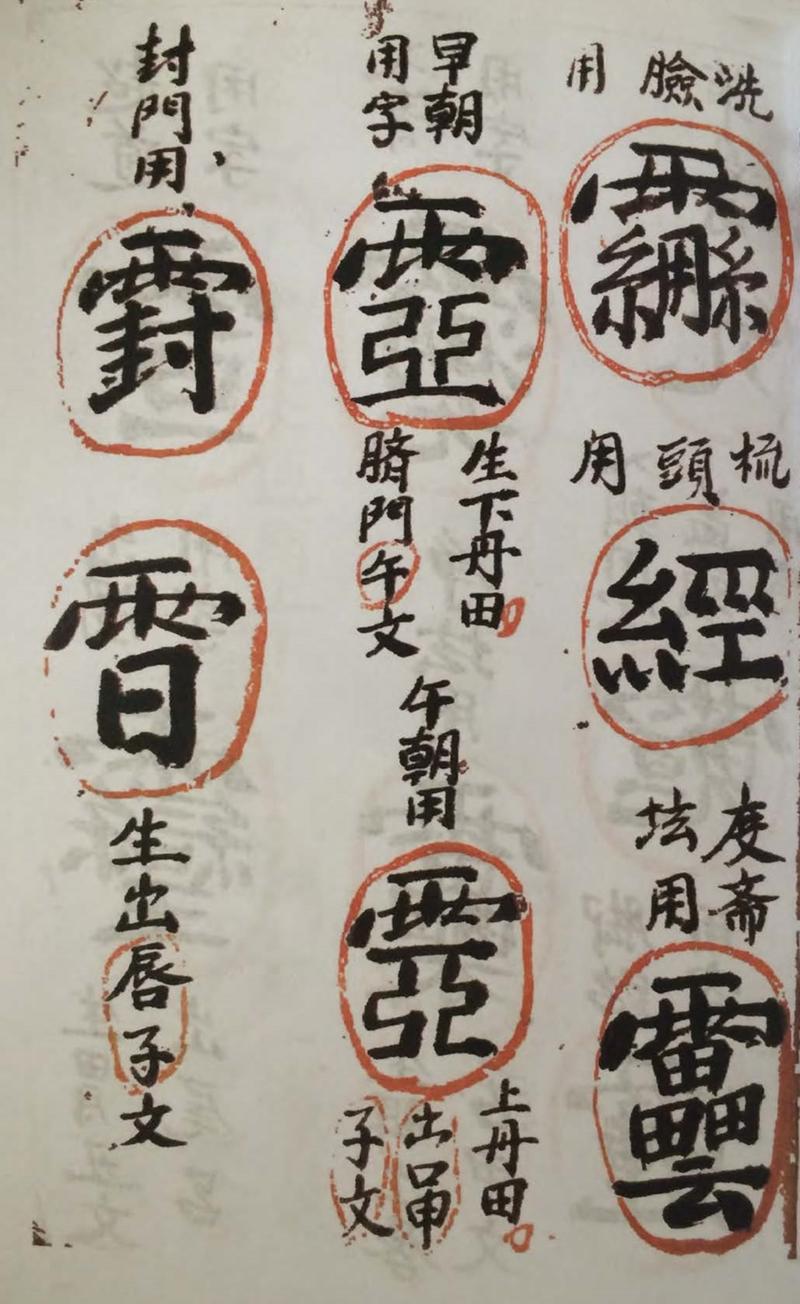 洗臉用
梳頭用
經
度斋
坛用
早朝
用字
生下丹田
臍門午文
午朝用
上丹田
出口申
子文
封門用
生出唇子文